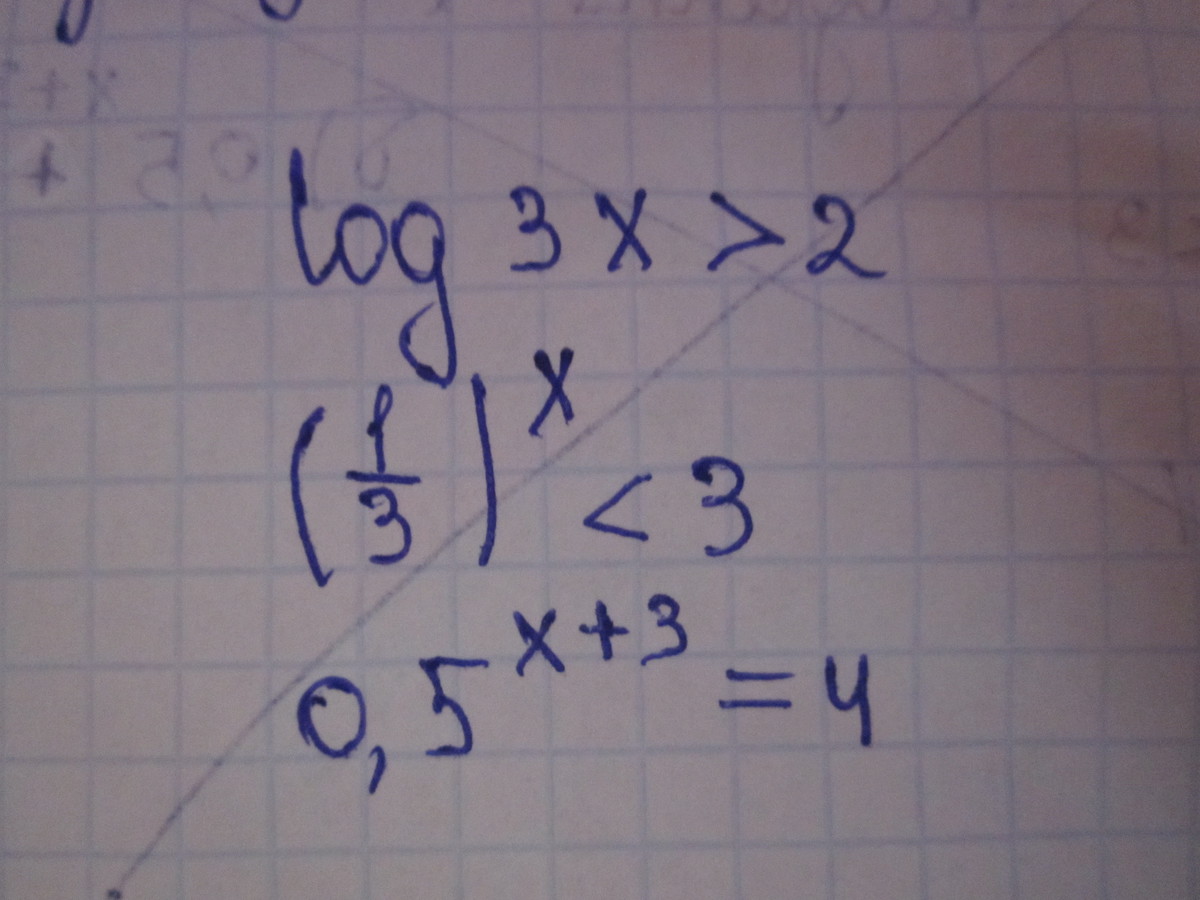 log 3 x > 2
(1/3)^x < 3
0,5^x+3 = 4